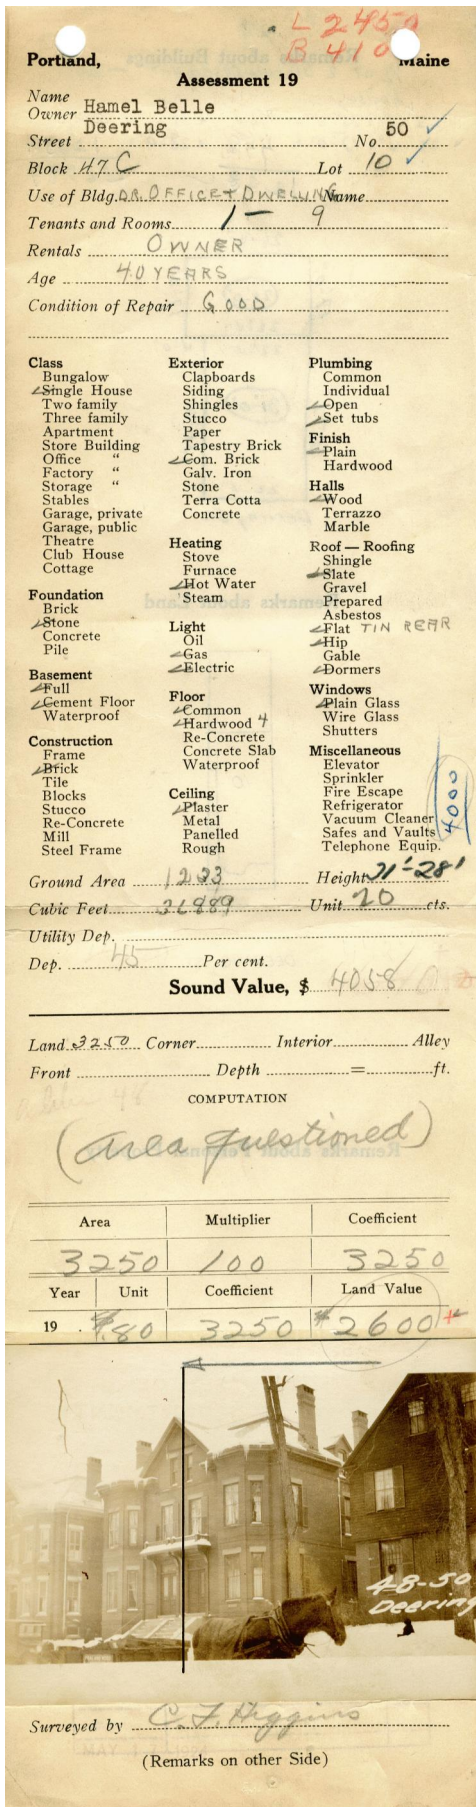 L 2450
B 410
Portland, Maine
Assessment 19
Name
Owner Hamel Belle
Street Deering No. 50
Block 47 C Lot 10
Use of Bldg. DR. OFFICE + DWELLING Name
Tenants and Rooms 1 — 9
Rentals OWNER
Age 40 YEARS
Condition of Repair GOOD
Class
Bungalow
Single House
Two family
Three family
Apartment
Store Building
Office "
Factory "
Storage "
Stables
Garage, private
Garage, public
Theatre
Club House
Cottage
Foundation
Brick
Stone
Concrete
Pile
Basement
Full
Cement Floor
Waterproof
Construction
Frame
Brick
Tile
Blocks
Stucco
Re-Concrete
Mill
Steel Frame
Exterior
Clapboards
Siding
Shingles
Stucco
Paper
Tapestry Brick
Com. Brick
Galv. Iron
Stone
Terra Cotta
Concrete
Heating
Stove
Furnace
Hot Water
Steam
Light
Oil
Gas
Electric
Floor
Common
Hardwood 4
Re-Concrete
Concrete Slab
Waterproof
Ceiling
Plaster
Metal
Panelled
Rough
Plumbing
Common
Individual
Open
Set tubs
Finish
Plain
Hardwood
Halls
Wood
Terrazzo
Marble
Roof — Roofing
Shingle
Slate
Gravel
Prepared
Asbestos
Flat TIN REAR
Hip
Gable
Dormers
Windows
Plain Glass
Wire Glass
Shutters
Miscellaneous
Elevator
Sprinkler
Fire Escape
Refrigerator
Vacuum Cleaner
Safes and Vaults
Telephone Equip.
4000
Ground Area 1223 Height 21'-28'
Cubic Feet 36889 Unit 20 cts.
Utility Dep.
Dep. 45 Per cent.
Sound Value, $ 4058
Land 3250 Corner Interior Alley
Front Depth = ft.
COMPUTATION
(area questioned)
Area Multiplier Coefficient
3250 100 3250
Year Unit Coefficient Land Value
19 $.80 3250 $2600
48-50
Deering
Surveyed by C. F. Higgins
(Remarks on other Side)